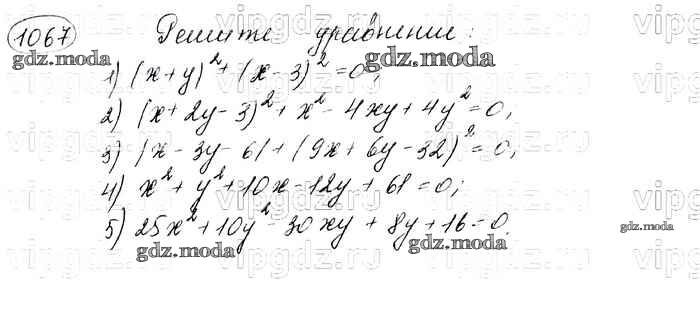 1067 Решите уравнение:
1) (x+y)²+(x-3)²=0;
2) (x+2y-3)²+x²-4xy+4y²=0;
3) |x-3y-6|+(9x+6y-32)²=0;
4) x²+y²+10x-12y+61=0;
5) 25x²+10y²-30xy+8y+16=0.
gdz.moda
gdz.moda
gdz.moda
gdz.moda
gdz.moda
vipgdz.ru
vipgdz.ru
vipgdz.ru
vipgdz.ru